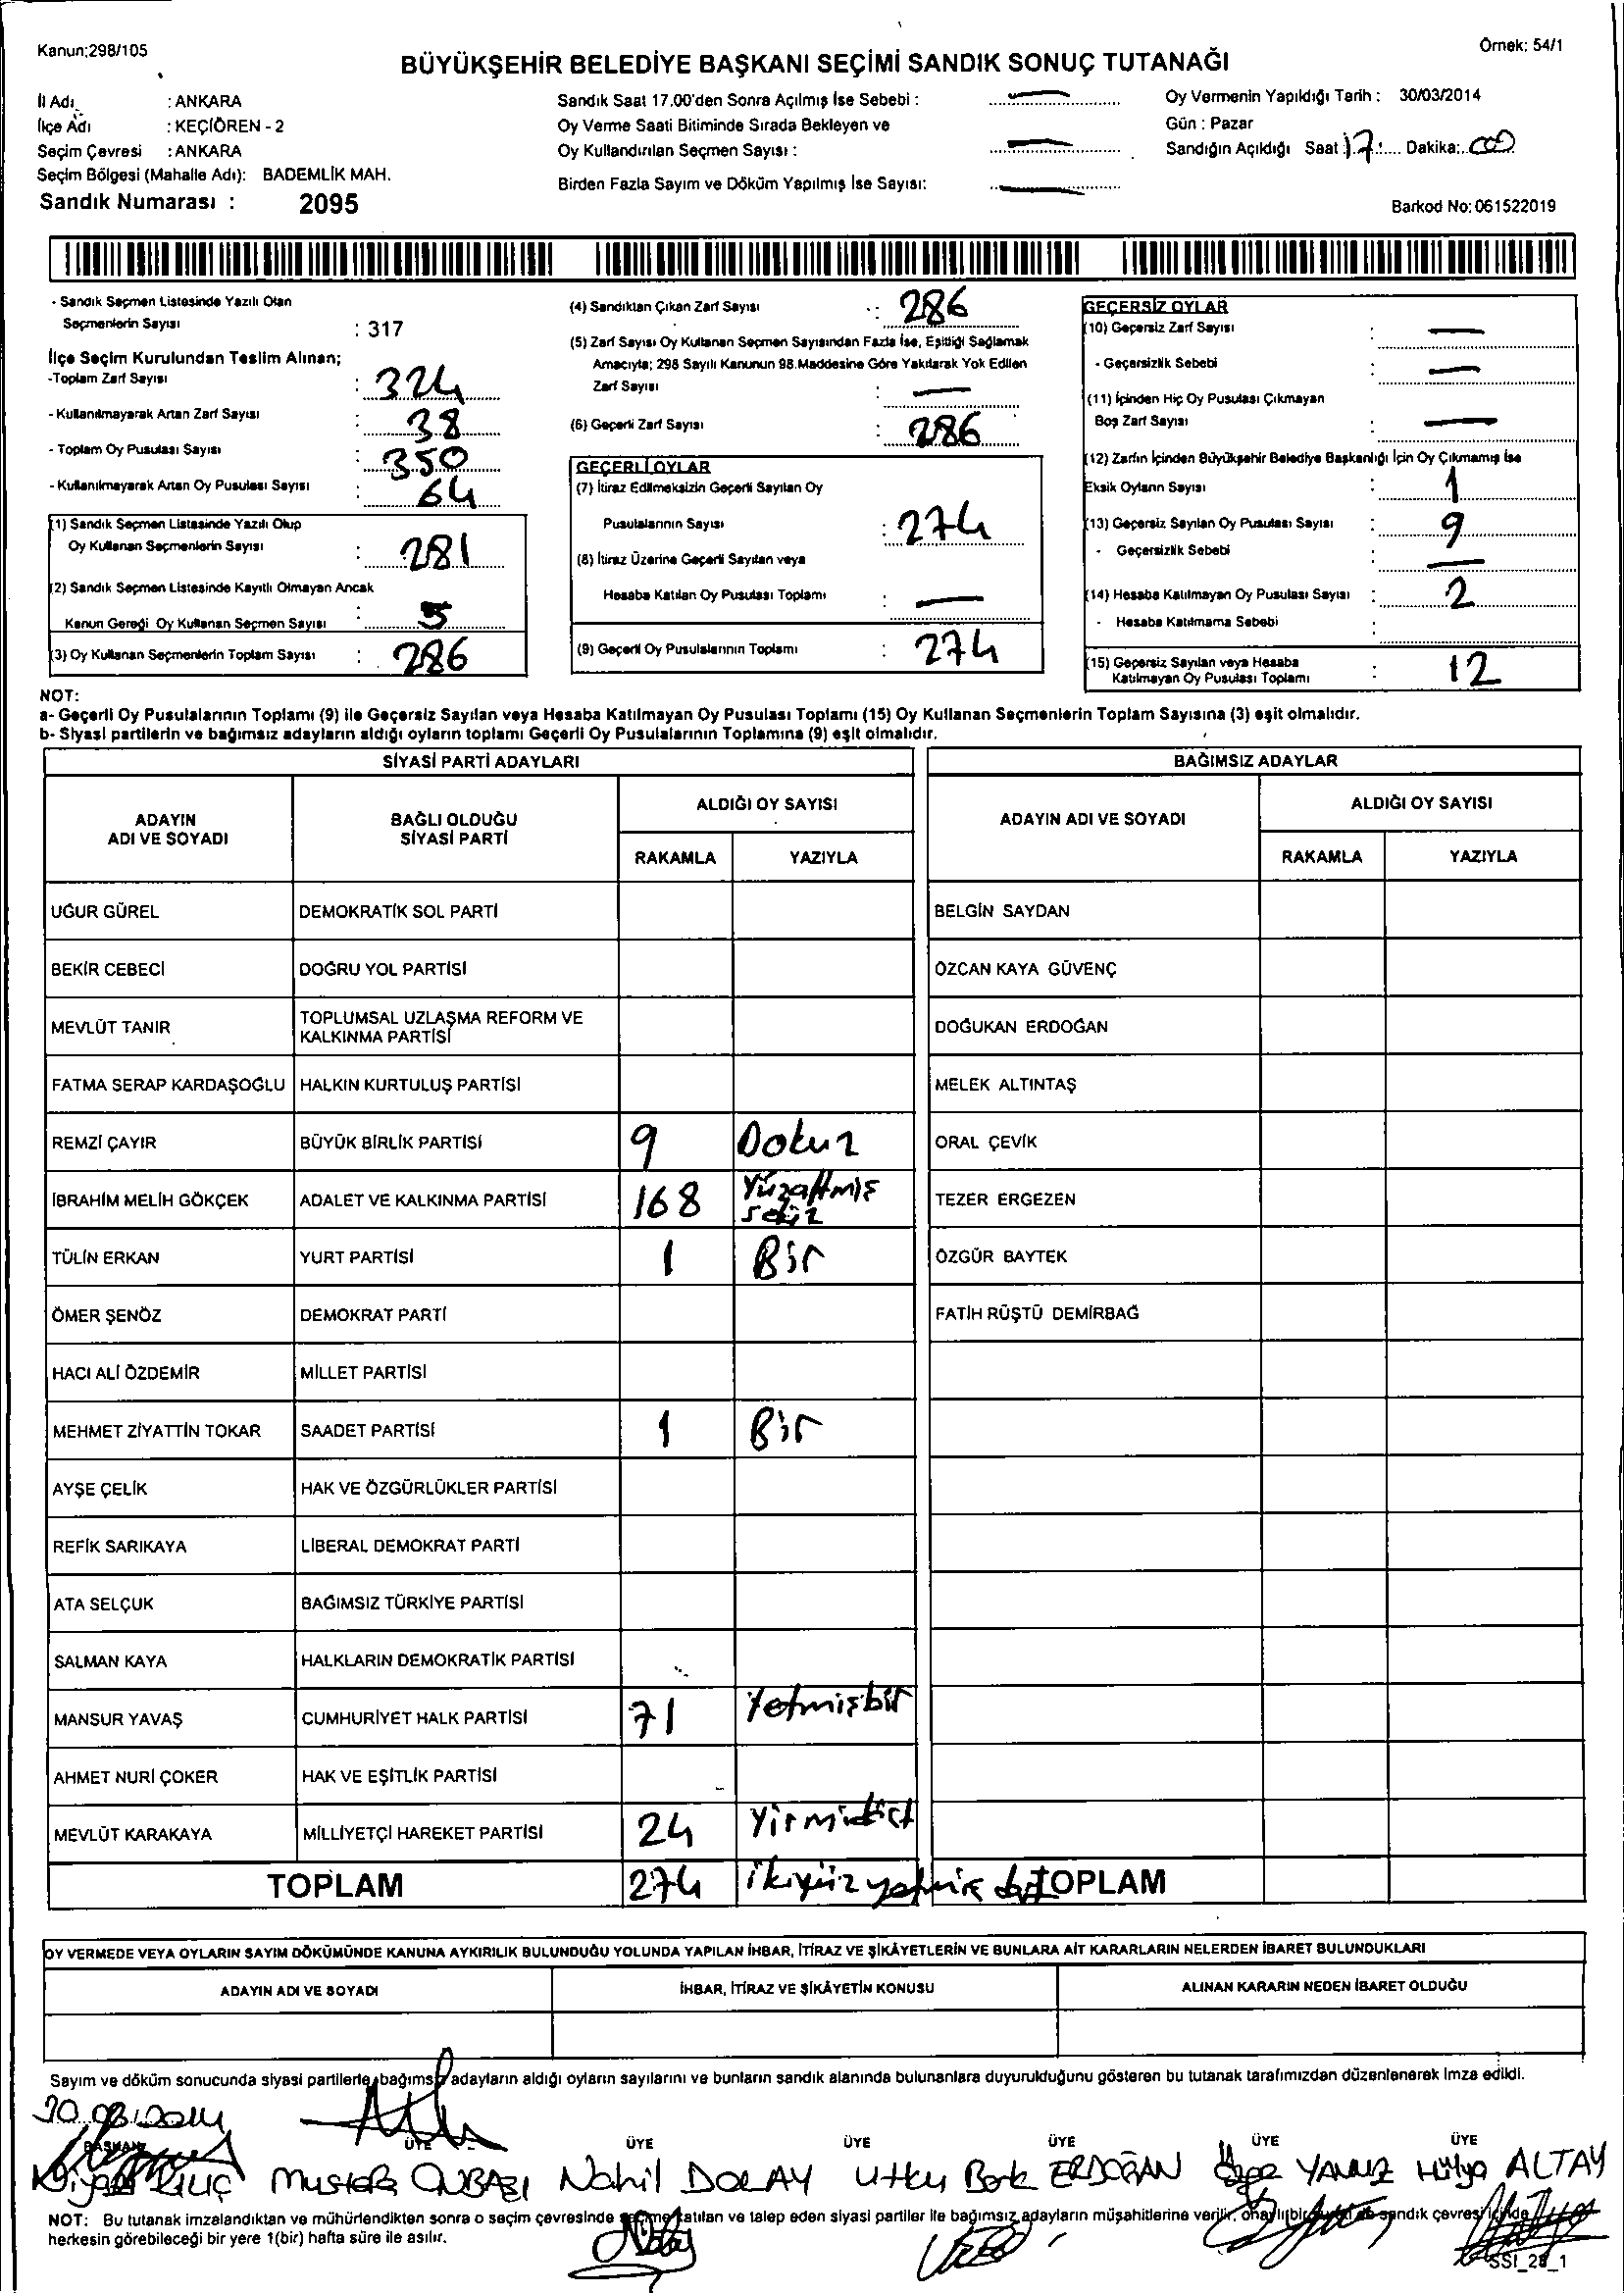 Kanun;298/105
Örnek: 54/1
BÜYÜKŞEHİR BELEDİYE BAŞKANI SEÇİMİ SANDIK SONUÇ TUTANAĞI
İl Adı : ANKARA
İlçe Adı : KEÇİÖREN - 2
Seçim Çevresi : ANKARA
Seçim Bölgesi (Mahalle Adı): BADEMLİK MAH.
Sandık Numarası : 2095
Sandık Saat 17.00'den Sonra Açılmış İse Sebebi : —
Oy Verme Saati Bitiminde Sırada Bekleyen ve
Oy Kullandırılan Seçmen Sayısı : —
Birden Fazla Sayım ve Döküm Yapılmış İse Sayısı: —
Oy Vermenin Yapıldığı Tarih : 30/03/2014
Gün : Pazar
Sandığın Açıldığı Saat :17:.... Dakika:..00
Barkod No: 061522019
- Sandık Seçmen Listesinde Yazılı Olan
Seçmenlerin Sayısı : 317
İlçe Seçim Kurulundan Teslim Alınan;
-Toplam Zarf Sayısı : 324
- Kullanılmayarak Artan Zarf Sayısı : 38
- Toplam Oy Pusulası Sayısı : 350
- Kullanılmayarak Artan Oy Pusulası Sayısı : 64
(1) Sandık Seçmen Listesinde Yazılı Olup
Oy Kullanan Seçmenlerin Sayısı : 281
(2) Sandık Seçmen Listesinde Kayıtlı Olmayan Ancak
Kanun Gereği Oy Kullanan Seçmen Sayısı : 5
(3) Oy Kullanan Seçmenlerin Toplam Sayısı : 286
(4) Sandıktan Çıkan Zarf Sayısı : 286
(5) Zarf Sayısı Oy Kullanan Seçmen Sayısından Fazla İse, Eşitliği Sağlamak
Amacıyla; 298 Sayılı Kanunun 98.Maddesine Göre Yakılarak Yok Edilen
Zarf Sayısı : —
(6) Geçerli Zarf Sayısı : 286
GEÇERLİ OYLAR
(7) İtiraz Edilmeksizin Geçerli Sayılan Oy
Pusulalarının Sayısı : 274
(8) İtiraz Üzerine Geçerli Sayılan veya
Hesaba Katılan Oy Pusulası Toplamı : —
(9) Geçerli Oy Pusulalarının Toplamı : 274
GEÇERSİZ OYLAR
(10) Geçersiz Zarf Sayısı : —
- Geçersizlik Sebebi : —
(11) İçinden Hiç Oy Pusulası Çıkmayan
Boş Zarf Sayısı : —
(12) Zarfın İçinden Büyükşehir Belediye Başkanlığı İçin Oy Çıkmamış İse
Eksik Oyların Sayısı : 1
(13) Geçersiz Sayılan Oy Pusulası Sayısı : 9
- Geçersizlik Sebebi : —
(14) Hesaba Katılmayan Oy Pusulası Sayısı : 2
- Hesaba Katılmama Sebebi :
(15) Geçersiz Sayılan veya Hesaba
Katılmayan Oy Pusulası Toplamı : 12
NOT:
a- Geçerli Oy Pusulalarının Toplamı (9) ile Geçersiz Sayılan veya Hesaba Katılmayan Oy Pusulası Toplamı (15) Oy Kullanan Seçmenlerin Toplam Sayısına (3) eşit olmalıdır.
b- Siyasi partilerin ve bağımsız adayların aldığı oyların toplamı Geçerli Oy Pusulalarının Toplamına (9) eşit olmalıdır.
SİYASİ PARTİ ADAYLARI
ADAYIN ADI VE SOYADI BAĞLI OLDUĞU SİYASİ PARTİ ALDIĞI OY SAYISI
RAKAMLA YAZIYLA
UĞUR GÜREL DEMOKRATİK SOL PARTİ
BEKİR CEBECİ DOĞRU YOL PARTİSİ
MEVLÜT TANIR TOPLUMSAL UZLAŞMA REFORM VE KALKINMA PARTİSİ
FATMA SERAP KARDAŞOĞLU HALKIN KURTULUŞ PARTİSİ
REMZİ ÇAYIR BÜYÜK BİRLİK PARTİSİ 9 Dokuz
İBRAHİM MELİH GÖKÇEK ADALET VE KALKINMA PARTİSİ 168 Yüzaltmış sekiz
TÜLİN ERKAN YURT PARTİSİ 1 Bir
ÖMER ŞENÖZ DEMOKRAT PARTİ
HACI ALİ ÖZDEMİR MİLLET PARTİSİ
MEHMET ZİYATTİN TOKAR SAADET PARTİSİ 1 Bir
AYŞE ÇELİK HAK VE ÖZGÜRLÜKLER PARTİSİ
REFİK SARIKAYA LİBERAL DEMOKRAT PARTİ
ATA SELÇUK BAĞIMSIZ TÜRKİYE PARTİSİ
SALMAN KAYA HALKLARIN DEMOKRATİK PARTİSİ
MANSUR YAVAŞ CUMHURİYET HALK PARTİSİ 71 Yetmişbir
AHMET NURİ ÇOKER HAK VE EŞİTLİK PARTİSİ
MEVLÜT KARAKAYA MİLLİYETÇİ HAREKET PARTİSİ 24 Yirmidört
TOPLAM 274 ikiyüz yetmiş dört
BAĞIMSIZ ADAYLAR
ADAYIN ADI VE SOYADI ALDIĞI OY SAYISI
RAKAMLA YAZIYLA
BELGİN SAYDAN
ÖZCAN KAYA GÜVENÇ
DOĞUKAN ERDOĞAN
MELEK ALTINTAŞ
ORAL ÇEVİK
TEZER ERGEZEN
ÖZGÜR BAYTEK
FATİH RÜŞTÜ DEMİRBAĞ
TOPLAM
OY VERMEDE VEYA OYLARIN SAYIM DÖKÜMÜNDE KANUNA AYKIRILIK BULUNDUĞU YOLUNDA YAPILAN İHBAR, İTİRAZ VE ŞİKÂYETLERİN VE BUNLARA AİT KARARLARIN NELERDEN İBARET BULUNDUKLARI
ADAYIN ADI VE SOYADI İHBAR, İTİRAZ VE ŞİKÂYETİN KONUSU ALINAN KARARIN NEDEN İBARET OLDUĞU
Sayım ve döküm sonucunda siyasi partilerle bağımsız adayların aldığı oyların sayılarını ve bunların sandık alanında bulunanlara duyurulduğunu gösteren bu tutanak tarafımızdan düzenlenerek imza edildi.
30.03.2014
BAŞKAN ÜYE ÜYE ÜYE ÜYE ÜYE ÜYE
KILIÇ Mustafa Nahil DOLAY Utku Berk ERDOĞAN Özge YAVUZ Hülya ALTAY
NOT: Bu tutanak imzalandıktan ve mühürlendikten sonra o seçim çevresinde seçime katılan ve talep eden siyasi partiler ile bağımsız adayların müşahitlerine verilir. onaylı bir sureti de sandık çevresi içinde
herkesin görebileceği bir yere 1(bir) hafta süre ile asılır.
SSI_28_1